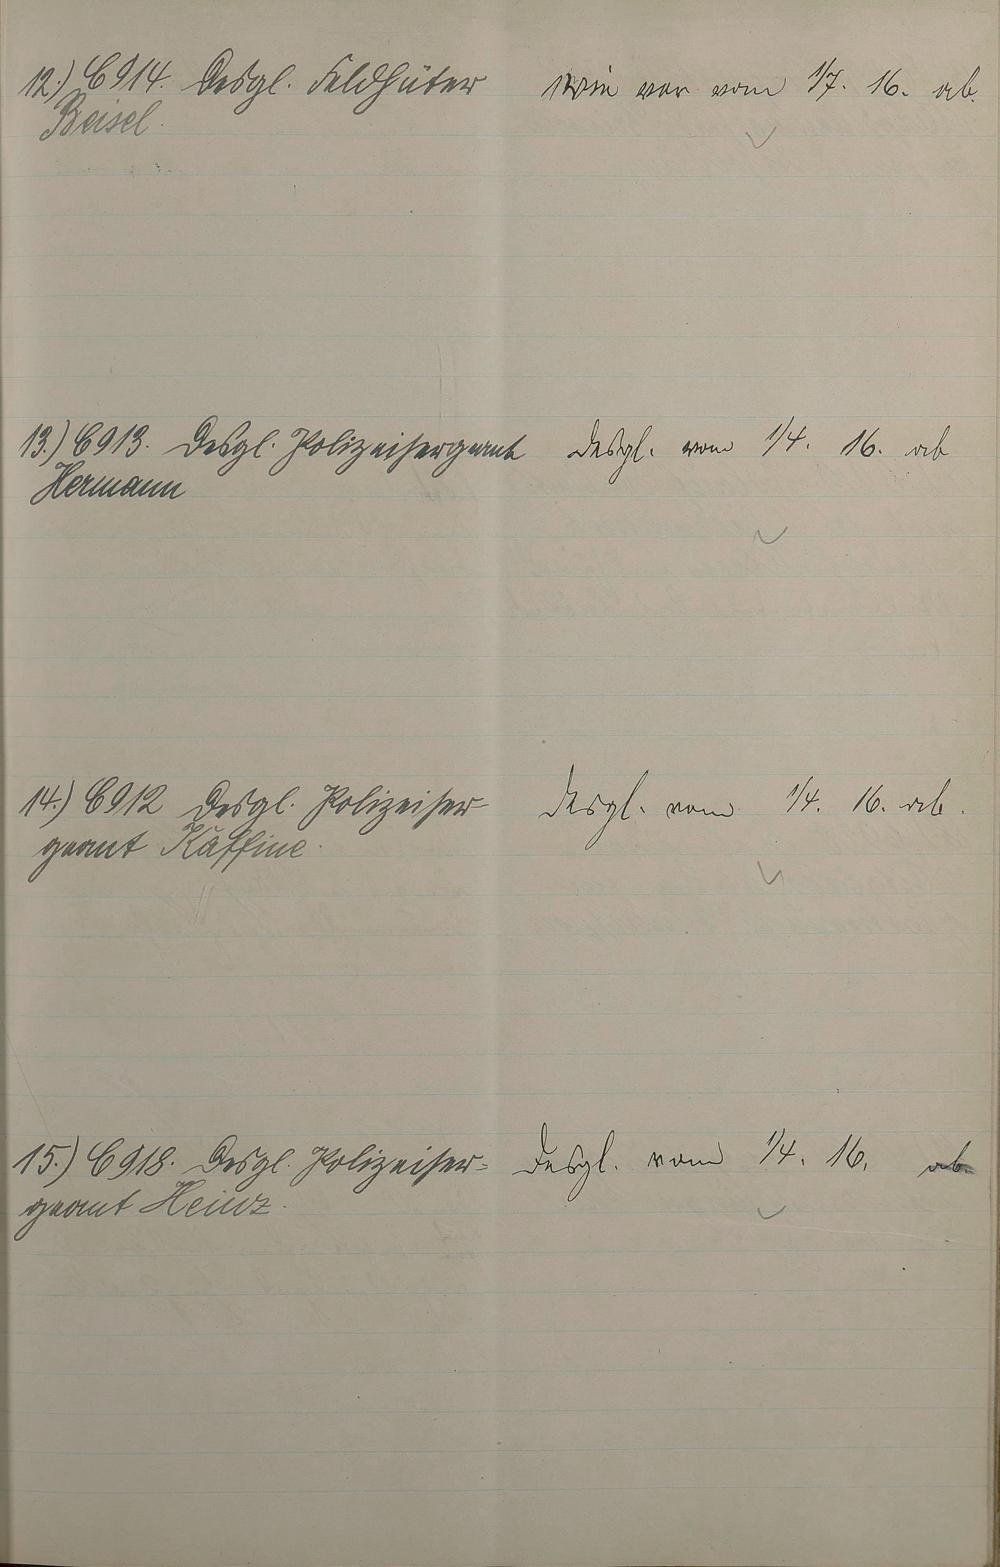 12.) C914. Desgl. Feldhüter
Beisel.
Wie vor vom 1/7. 16. ab.
13.) C913. Desgl. Polizeisergeant
Hermann
Desgl. vom 1/4. 16. ab
14.) C912 Desgl. Polizeiser-
geant Kaffine.
Desgl. vom 1/4. 16. ab.
15.) C918. Desgl. Polizeiser-
geant Heinz.
Desgl. vom 1/4. 16. ab.